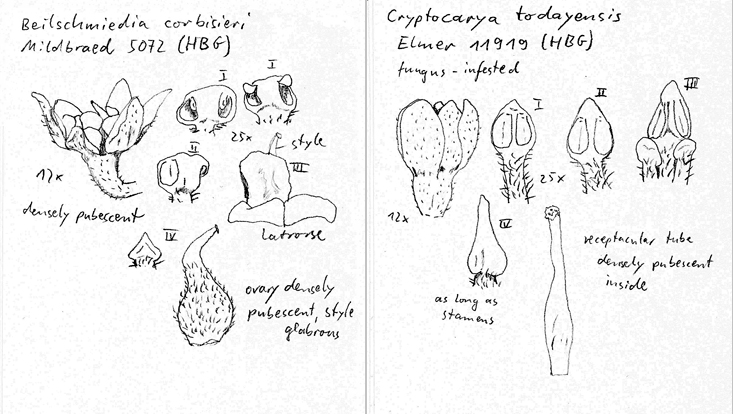 Beilschmiedia corbisieri
Mildbraed 5072 (HBG)
I
I
25x
style
II
III
12x
densely pubescent
latrorse
IV
ovary densely
pubescent, style
glabrous
Cryptocarya todayensis
Elmer 11919 (HBG)
fungus-infested
I
II
III
25x
12x
IV
as long as
stamens
receptacular tube
densely pubescent
inside